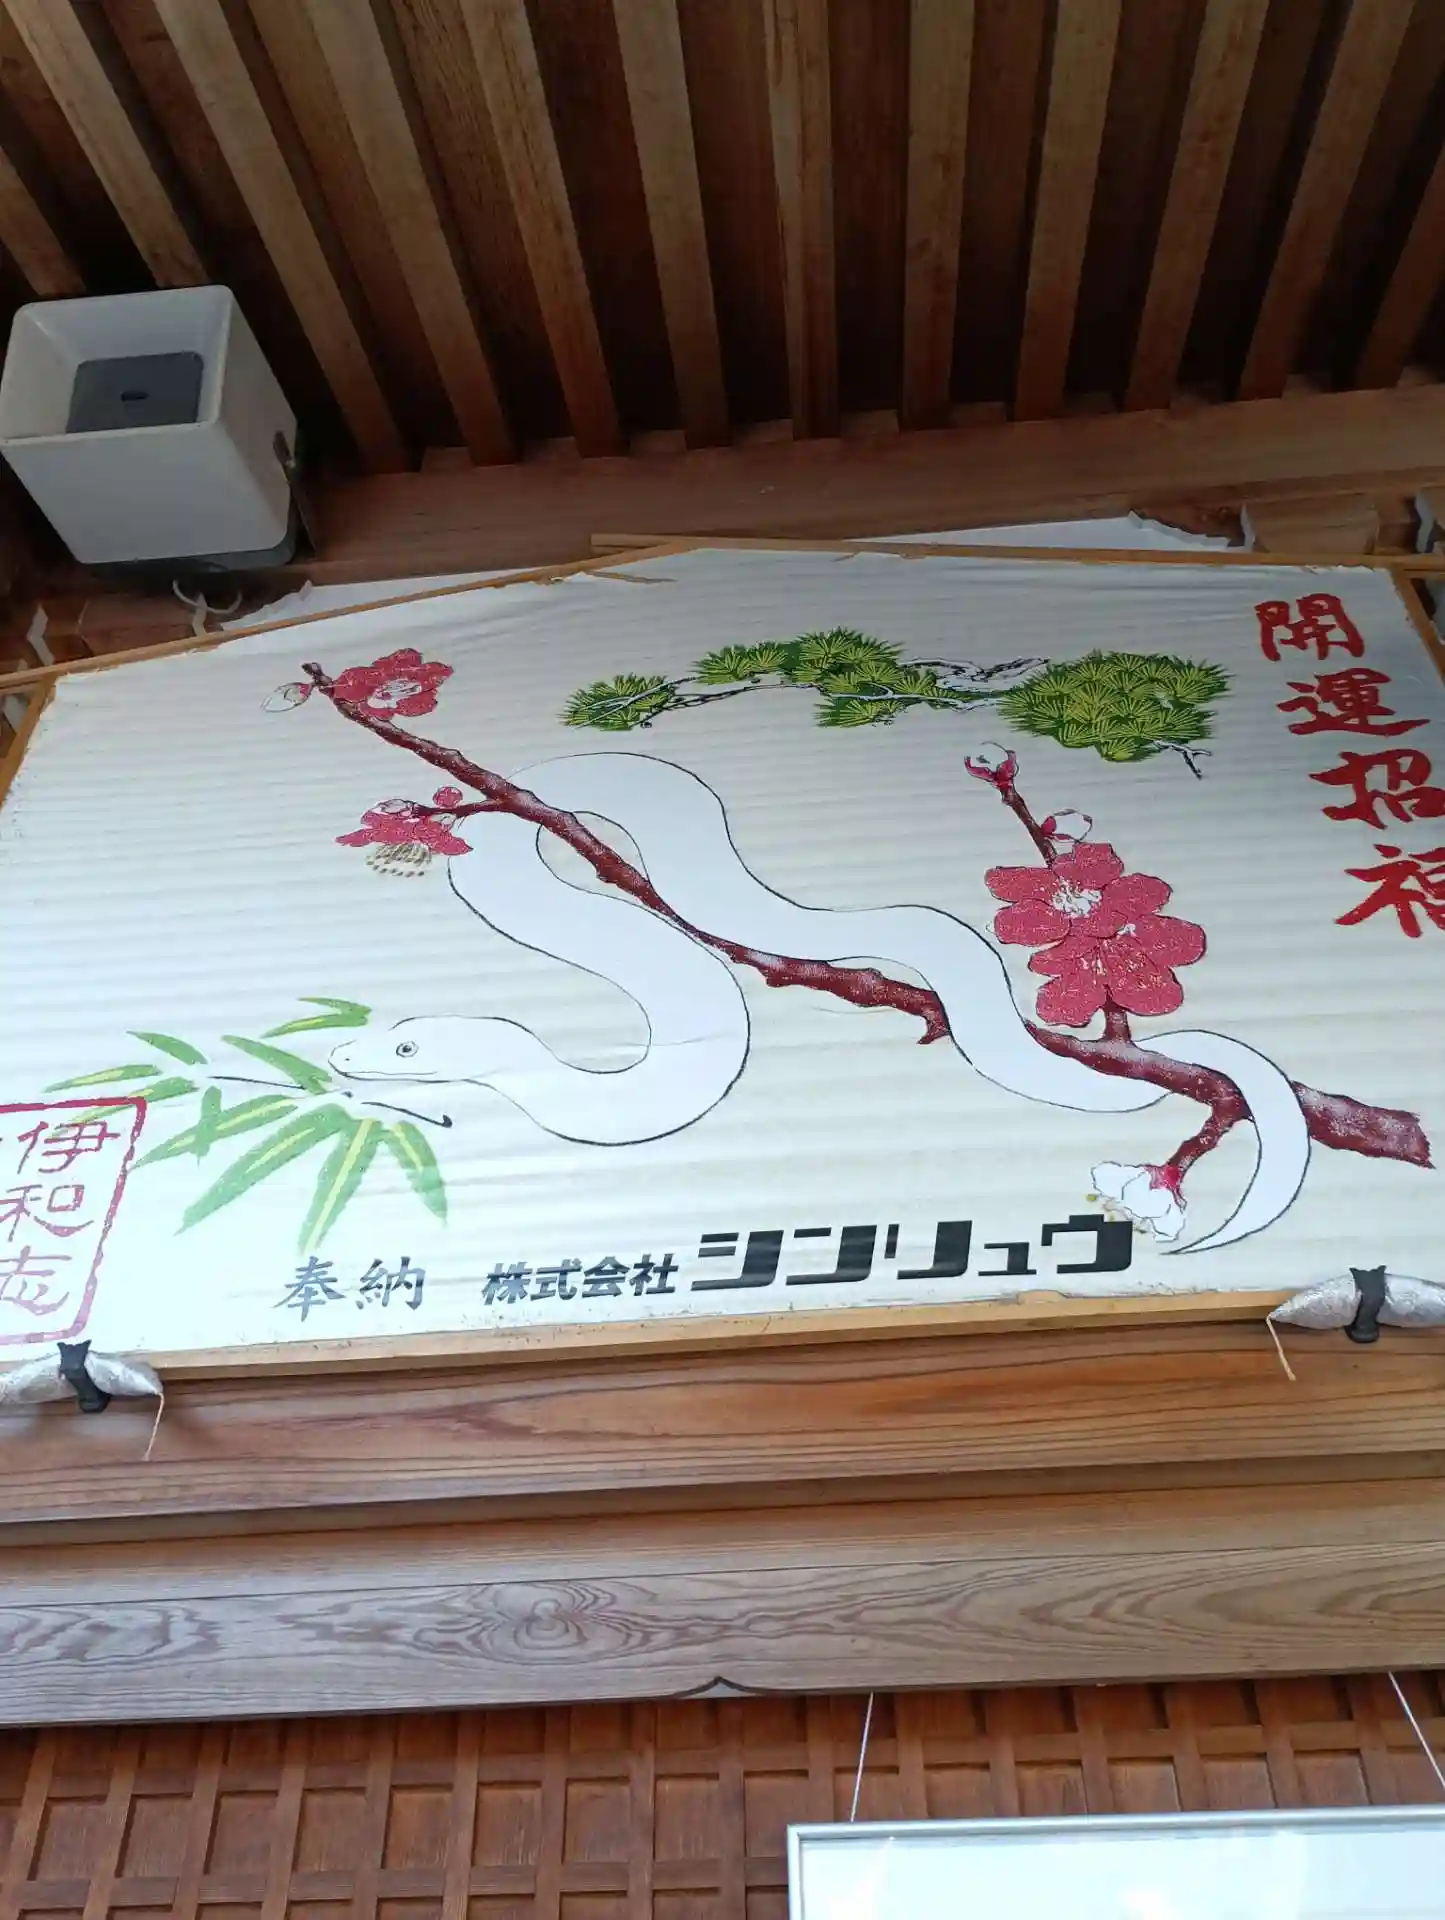 開運招福
伊和志
奉納 株式会社シンリュウ